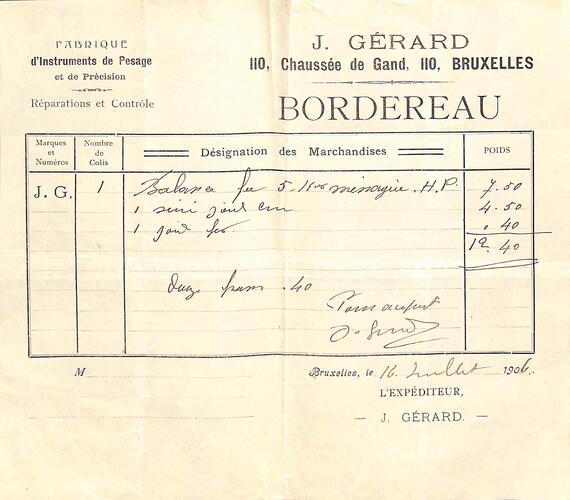 FABRIQUE
d'Instruments de Pesage
et de Précision
Réparations et Contrôle
J. GÉRARD
110, Chaussée de Gand, 110, BRUXELLES
BORDEREAU
Marques et Numéros
Nombre de Colis
Désignation des Marchandises
POIDS
J. G. 1 Balance 5 ménagère H.P. 7.50
1 4.50
1 0 40
12.40
francs .40
Pour acquit
M
Bruxelles, le 16 Juillet 1906.
L'EXPÉDITEUR,
— J. GÉRARD. —